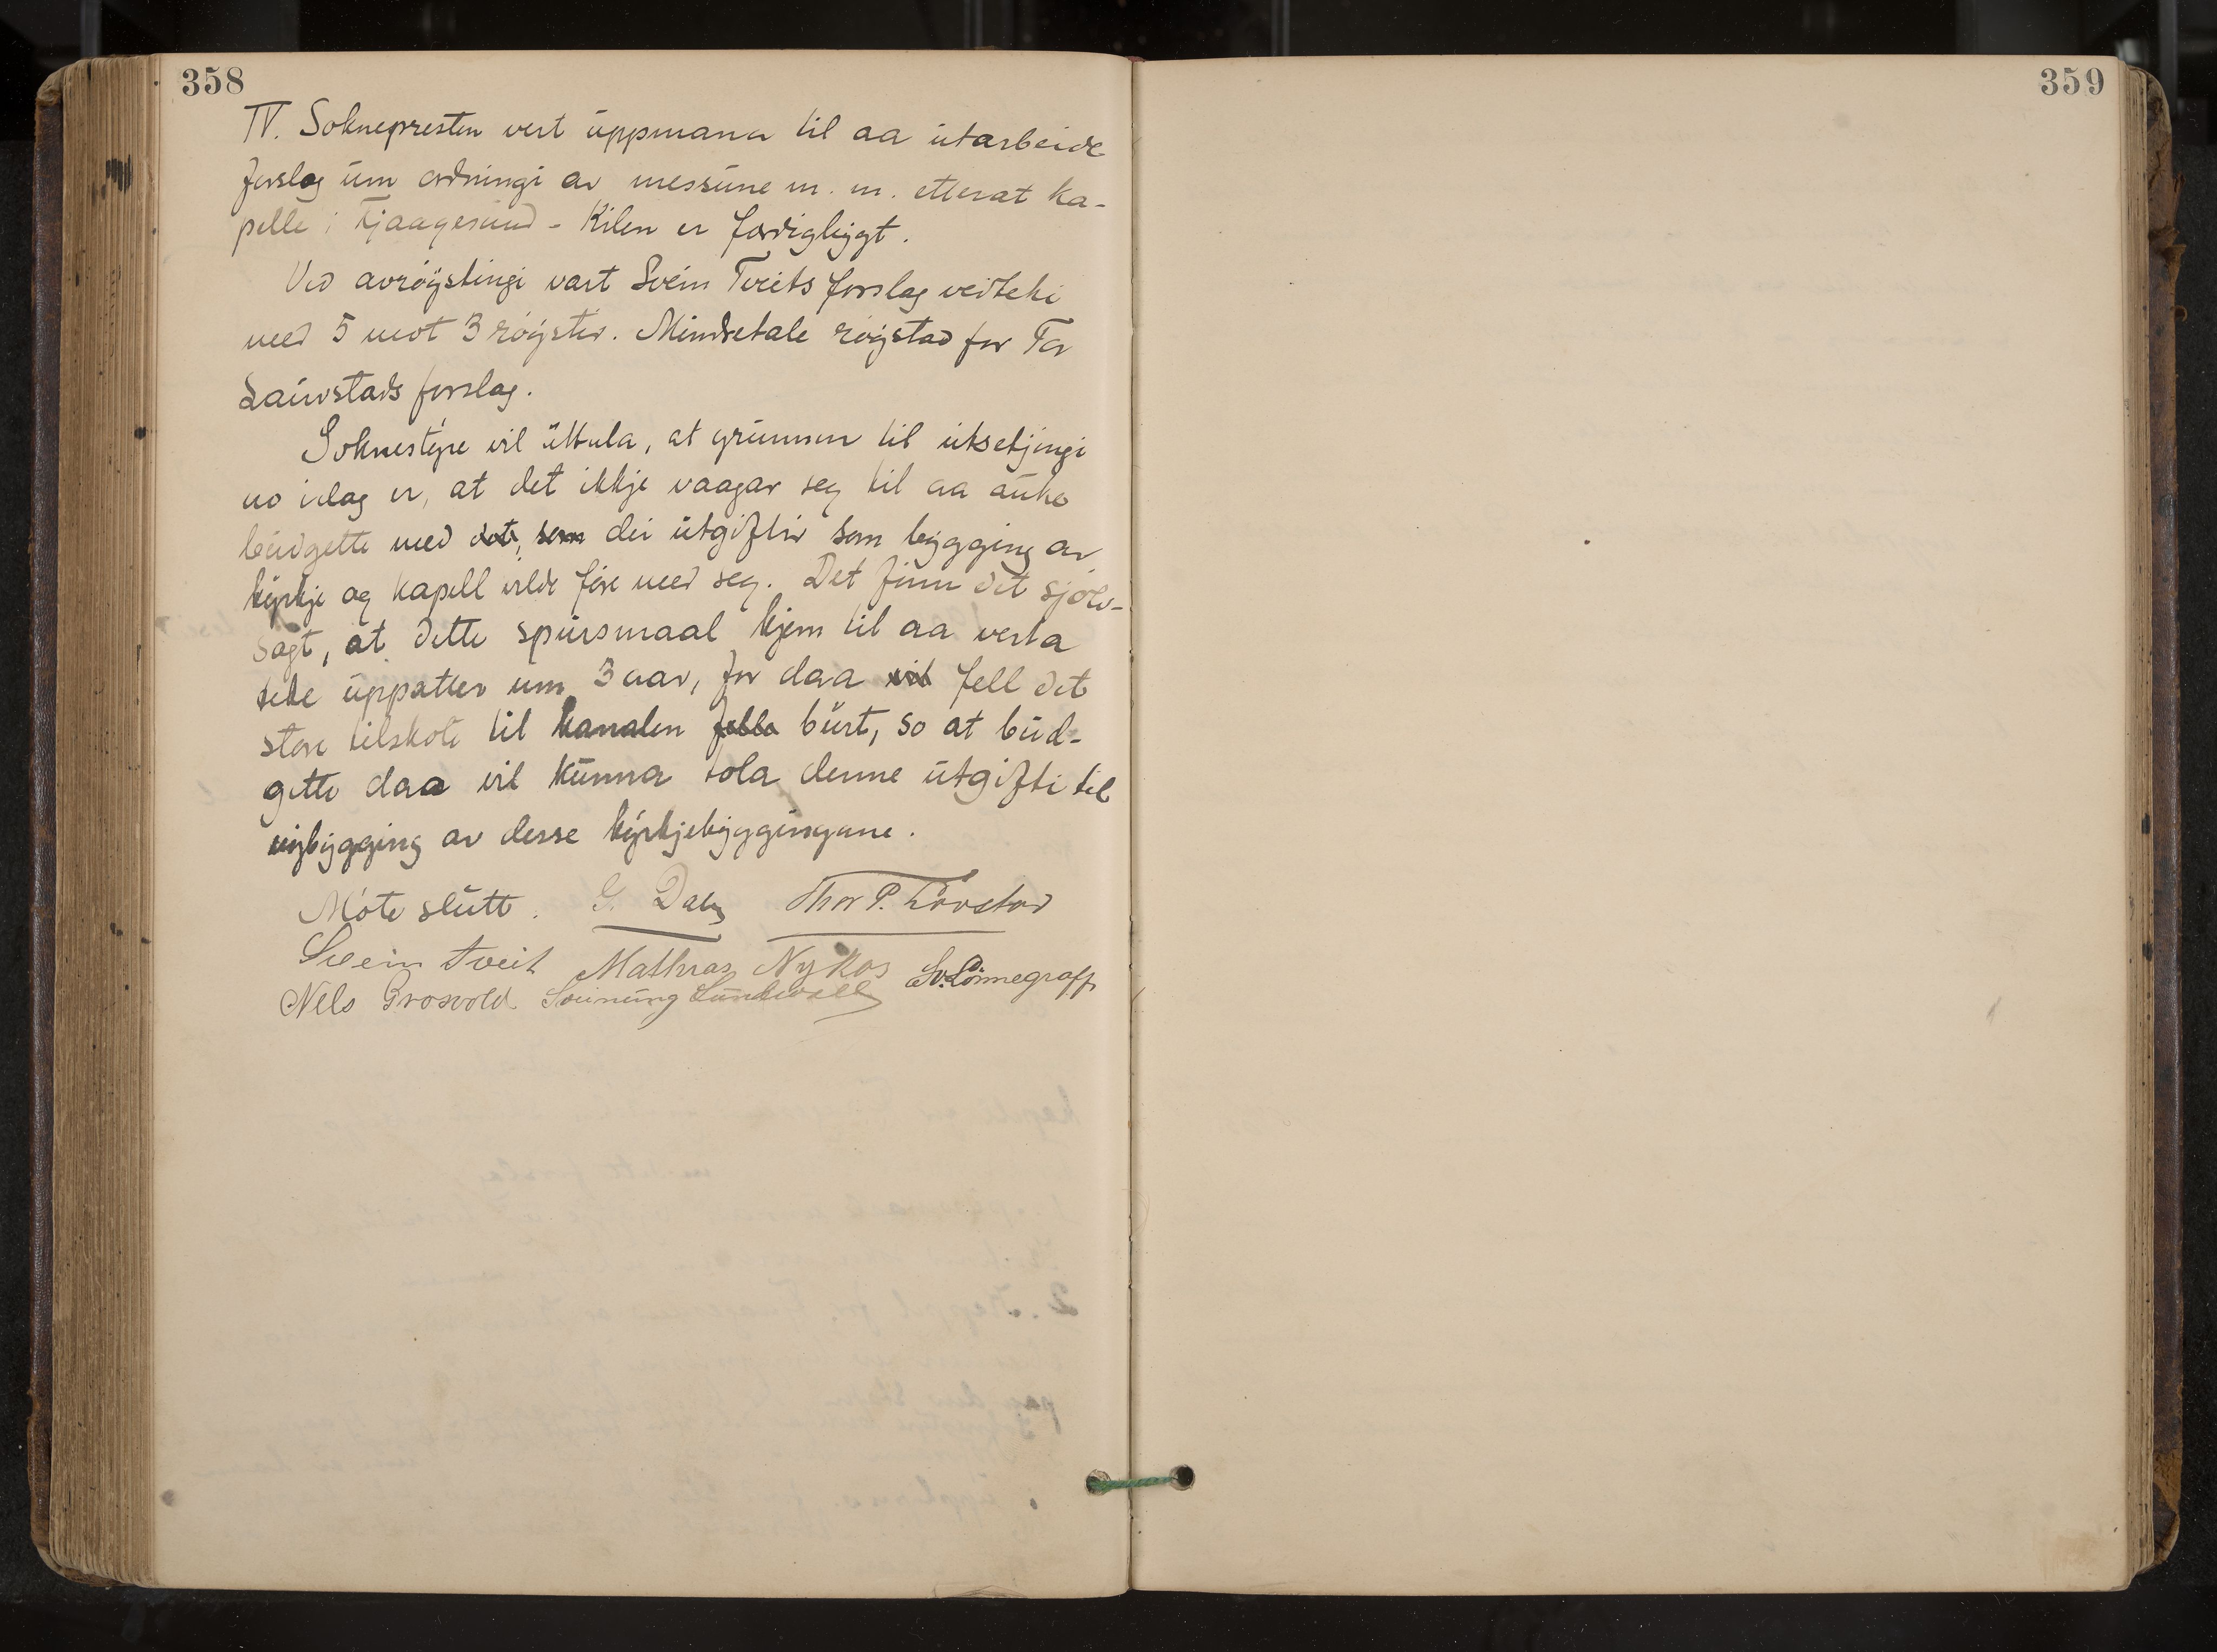 358
IV. Soknepresten vert uppmana til aa utarbeide
forslag um ordningi av messune m. m. etterat ka-
pelle i Fjaagesund - Kilen er ferdigbygt.
Ved avröystingi vart Svein Tveits forslag vedteki
med 5 mot 3 röyster. Mindretale röystad for Tor
Lauvstads forslag.
Soknestyre vil uttala, at grunnen til utsetjingi
no idag er, at det ikkje vaagar seg til aa auke
budgette med det, som dei utgiftir som bygging av
kyrkje og kapell vilde före med seg. Det finn det sjölv-
sagt, at dette spursmaal kjem til aa verta
teke uppatter um 3 aar, for daa vil fell det
store tilskote til kanalen falla burt, so at bud-
gette daa vil kunna tola denne utgifti til
nybygging av desse kyrkjebyggingane.
Möte slutt. G. Dale Thor P. Lövstad
Svein Tveit Mathias Nykos Sv. Lönnegraff
Nels Grosvold Sveinung Lundevall
359